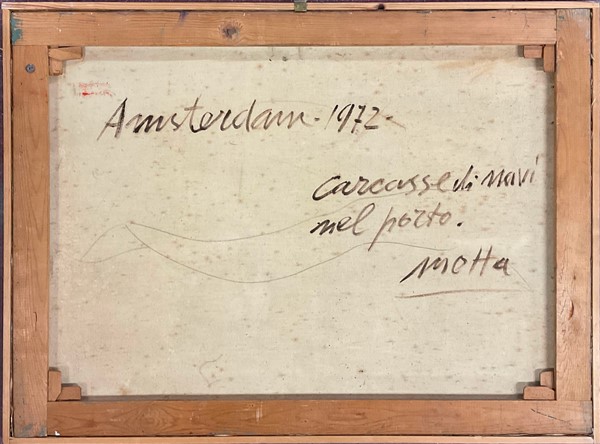 Amsterdam - 1972 -
carcasse di navi
nel porto.
Motta